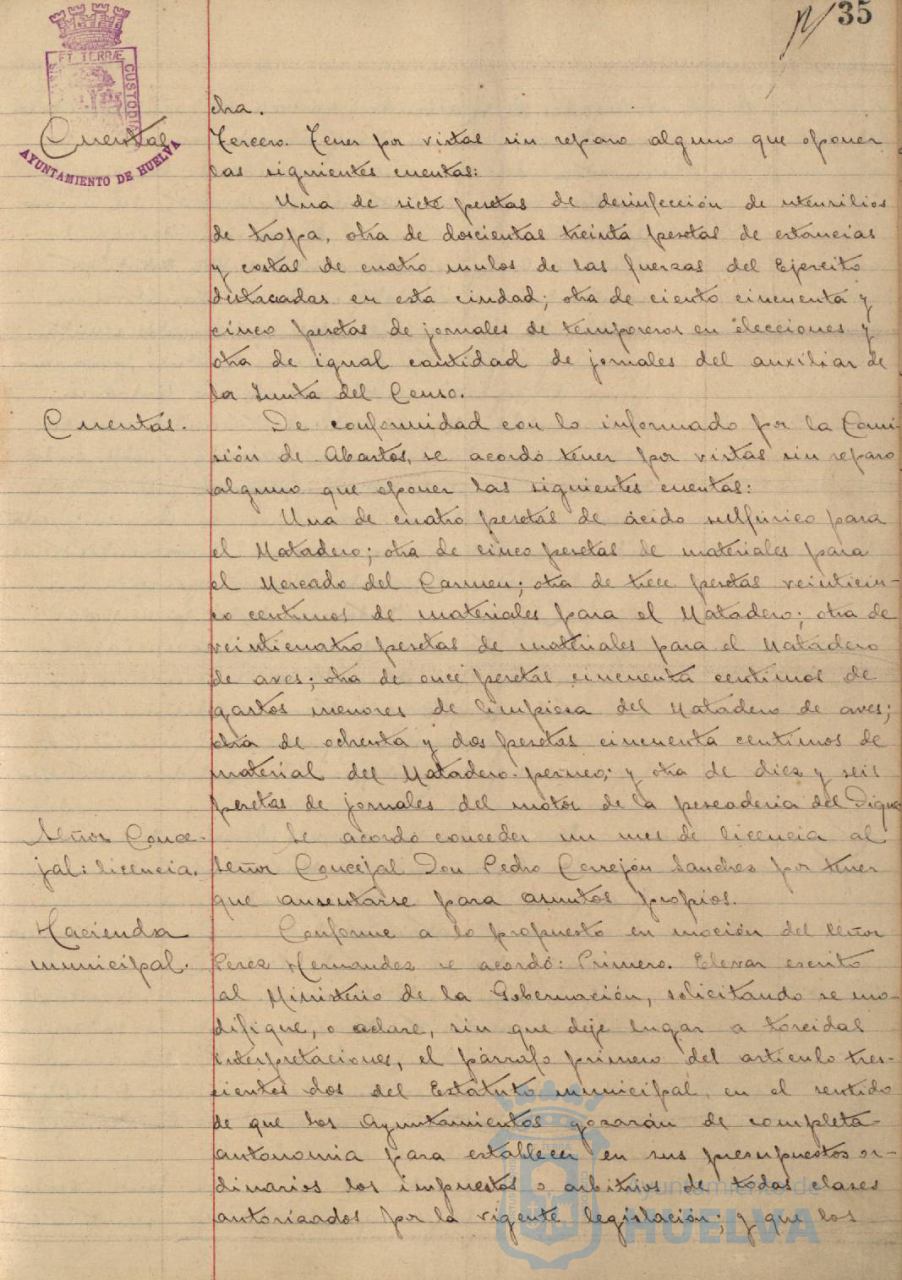 35
ET TERRÆ
CUSTODIA
AYUNTAMIENTO DE HUELVA
cha.
Cuentas
Tercero. Tener por vistas sin reparo alguno que oponer
las siguientes cuentas:
Una de siete pesetas de desinfección de utensilios
de tropa, otra de doscientas treinta pesetas de estancias
y costas de cuatro mulos de las fuerzas del Ejercito
destacadas en esta ciudad; otra de ciento cincuenta y
cinco pesetas de jornales de temporeros en elecciones y
otra de igual cantidad de jornales del auxiliar de
la Junta del Censo.
Cuentas.
De conformidad con lo informado por la Comi-
sión de Abastos, se acordó tener por vistas sin reparo
alguno que oponer las siguientes cuentas:
Una de cuatro pesetas de ácido sulfúrico para
el Matadero; otra de cinco pesetas de materiales para
el Mercado del Carmen; otra de trece pesetas veinticin-
co centimos de materiales para el Matadero; otra de
veinticuatro pesetas de materiales para el Matadero
de aves; otra de once pesetas cincuenta centimos de
gastos menores de limpiesa del Matadero de aves;
otra de ochenta y dos pesetas cincuenta centimos de
material del Matadero y otra de diez y seis
pesetas de jornales del motor de la pescaderia del Dique
Señor Conce-
jal: licencia.
Se acordó conceder un mes de licencia al
Señor Concejal Don Pedro Cerrejón Sanchez por tener
que ausentarse para asuntos propios.
Hacienda
municipal.
Conforme a lo propuesto en moción del Señor
Perez Hernandez se acordó: Primero. Elevar escrito
al Ministerio de la Gobernación, solicitando se mo-
difique, o aclare, sin que deje lugar a torcidas
interpretaciones, el párrafo primero del articulo tres-
cientos dos del Estatuto municipal, en el sentido
de que los Ayuntamientos gozarán de completa
autonomia para establecer en sus presupuestos or-
dinarios los impuestos o arbitrios de todas clases
autorizados por la vigente legislación; y que los
Ayuntamiento de
HUELVA